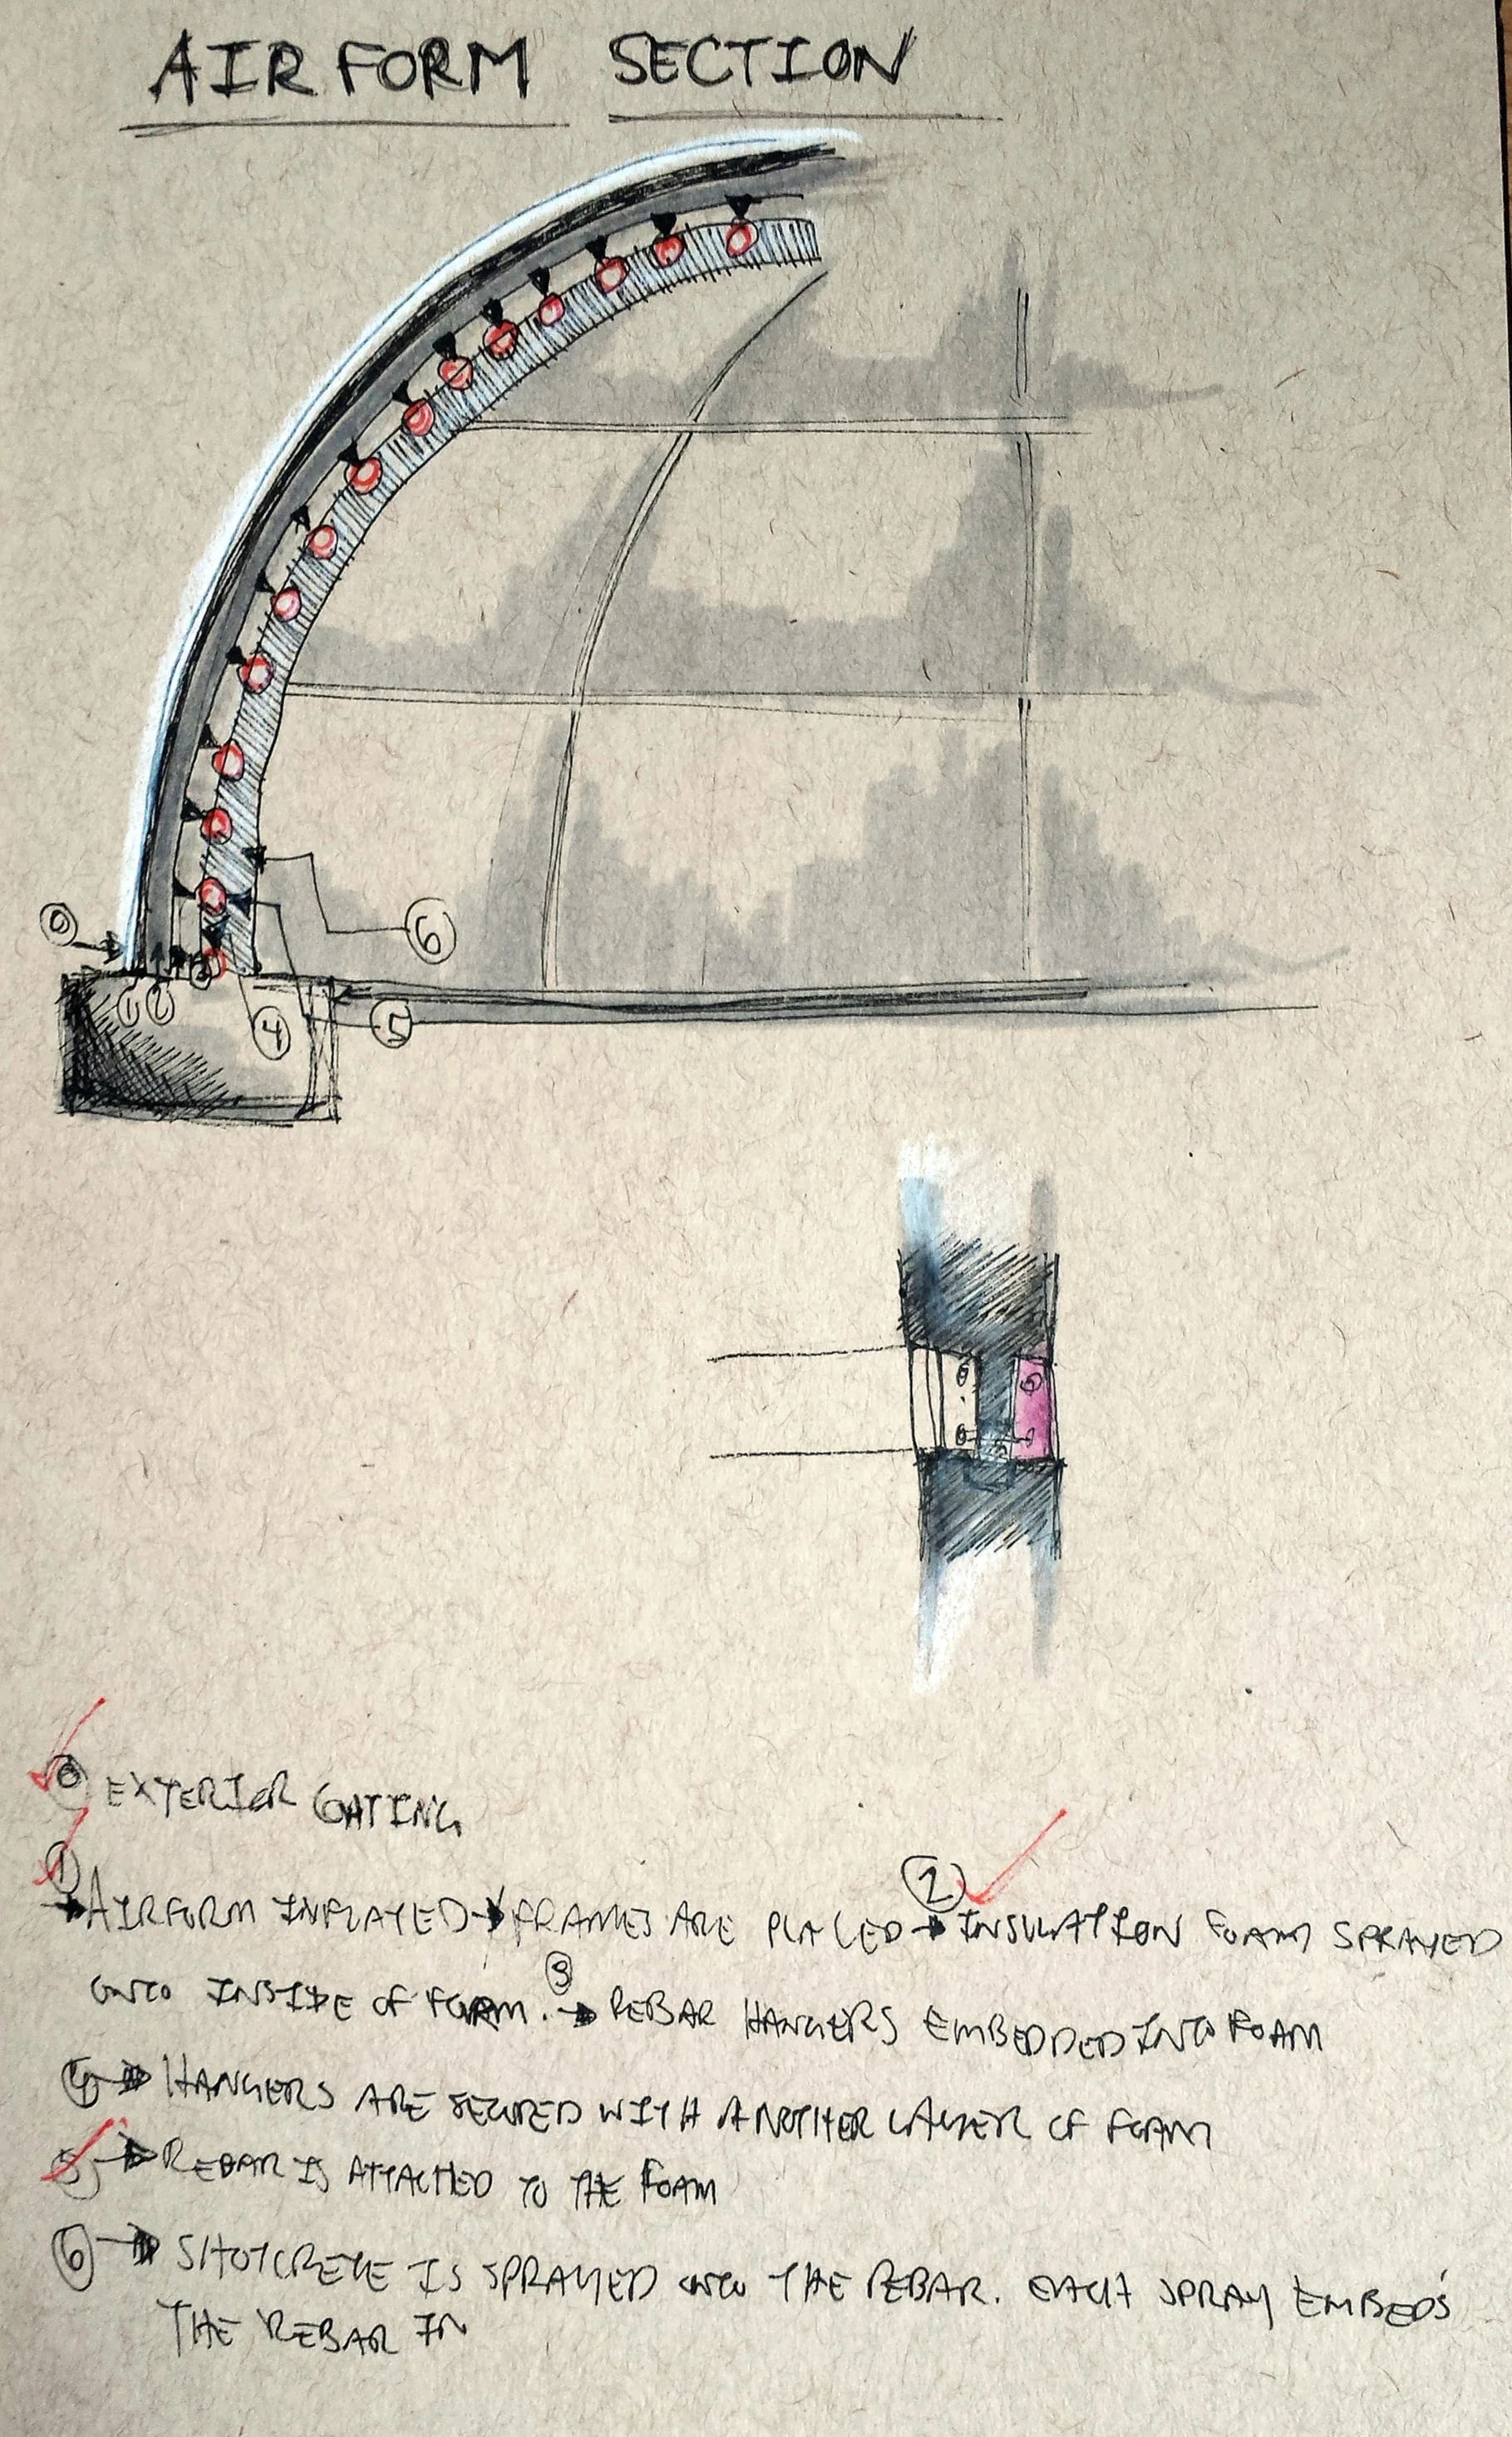 AIRFORM SECTION
0
6
1 2
4
5
6 5
6
0 EXTERIOR COATING
1
2
→ AIRFORM INFLATED → FRAMES ARE PLACED → INSULATION FOAM SPRAYED
3
ONTO INSIDE OF FORM. → REBAR HANGERS EMBEDDED INTO FOAM
4 → HANGERS ARE SECURED WITH ANOTHER LAYER OF FOAM
5 → REBAR IS ATTACHED TO THE FOAM
6 → SHOTCRETE IS SPRAYED ONTO THE REBAR. EACH SPRAY EMBEDS
THE REBAR IN